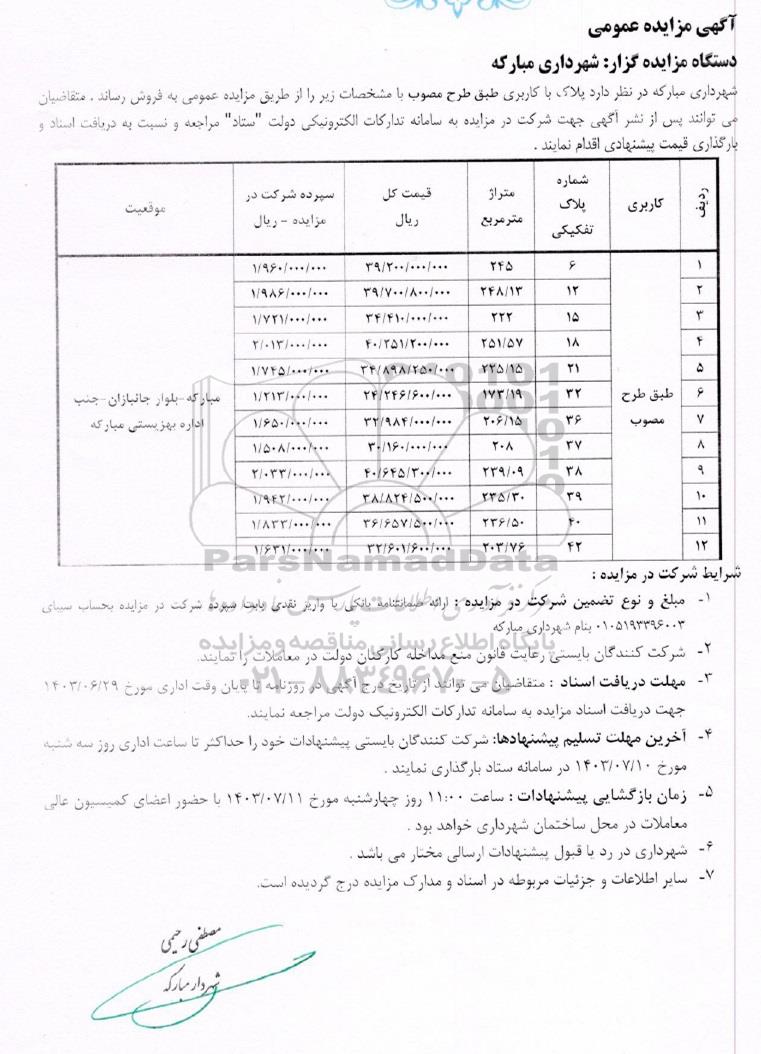 آگهی مزایده عمومی
دستگاه مزایده گزار: شهرداری مبارکه
شهرداری مبارکه در نظر دارد پلاک با کاربری طبق طرح مصوب با مشخصات زیر را از طریق مزایده عمومی به فروش رساند . متقاضیان
می توانند پس از نشر آگهی جهت شرکت در مزایده به سامانه تدارکات الکترونیکی دولت "ستاد" مراجعه و نسبت به دریافت اسناد و
بارگذاری قیمت پیشنهادی اقدام نمایند .
ردیف کاربری شماره پلاک تفکیکی متراژ مترمربع قیمت کل ریال سپرده شرکت در مزایده - ریال موقعیت
۱ ۶ ۲۴۵ ۳۹/۲۰۰/۰۰۰/۰۰۰ ۱/۹۶۰/۰۰۰/۰۰۰
۲ ۱۲ ۲۴۸/۱۳ ۳۹/۷۰۰/۸۰۰/۰۰۰ ۱/۹۸۶/۰۰۰/۰۰۰
۳ ۱۵ ۲۲۲ ۳۴/۴۱۰/۰۰۰/۰۰۰ ۱/۷۲۱/۰۰۰/۰۰۰
۴ ۱۸ ۲۵۱/۵۷ ۴۰/۲۵۱/۲۰۰/۰۰۰ ۲/۰۱۳/۰۰۰/۰۰۰
۵ ۲۱ ۲۲۵/۱۵ ۳۴/۸۹۸/۲۵۰/۰۰۰ ۱/۷۴۵/۰۰۰/۰۰۰
۶ طبق طرح ۳۲ ۱۷۳/۱۹ ۲۴/۲۴۶/۶۰۰/۰۰۰ ۱/۲۱۳/۰۰۰/۰۰۰ مبارکه-بلوار جانبازان-جنب
۷ مصوب ۳۶ ۲۰۶/۱۵ ۳۲/۹۸۴/۰۰۰/۰۰۰ ۱/۶۵۰/۰۰۰/۰۰۰ اداره بهزیستی مبارکه
۸ ۳۷ ۲۰۸ ۳۰/۱۶۰/۰۰۰/۰۰۰ ۱/۵۰۸/۰۰۰/۰۰۰
۹ ۳۸ ۲۳۹/۰۹ ۴۰/۶۴۵/۳۰۰/۰۰۰ ۲/۰۳۳/۰۰۰/۰۰۰
۱۰ ۳۹ ۲۳۵/۳۰ ۳۸/۸۲۴/۵۰۰/۰۰۰ ۱/۹۴۲/۰۰۰/۰۰۰
۱۱ ۴۰ ۲۳۶/۵۰ ۳۶/۶۵۷/۵۰۰/۰۰۰ ۱/۸۳۳/۰۰۰/۰۰۰
۱۲ ۴۲ ۲۰۳/۷۶ ۳۲/۶۰۱/۶۰۰/۰۰۰ ۱/۶۳۱/۰۰۰/۰۰۰
ParsNamadData
شرایط شرکت در مزایده :
۱- مبلغ و نوع تضمین شرکت در مزایده : ارائه ضمانتنامه بانکی یا واریز نقدی بابت سپرده شرکت در مزایده بحساب سیبای
۰۱۰۵۱۹۳۳۹۶۰۰۳ بنام شهرداری مبارکه
پایگاه اطلاع رسانی مناقصه و مزایده
۲- شرکت کنندگان بایستی رعایت قانون منع مداخله کارکنان دولت در معاملات را نمایند.
۰۲۱-۸۸۳۴۹۶۷۰-۵
۳- مهلت دریافت اسناد : متقاضیان می توانند از تاریخ درج آگهی در روزنامه تا پایان وقت اداری مورخ ۱۴۰۳/۰۶/۲۹
جهت دریافت اسناد مزایده به سامانه تدارکات الکترونیک دولت مراجعه نمایند.
۴- آخرین مهلت تسلیم پیشنهادها: شرکت کنندگان بایستی پیشنهادات خود را حداکثر تا ساعت اداری روز سه شنبه
مورخ ۱۴۰۳/۰۷/۱۰ در سامانه ستاد بارگذاری نمایند .
۵- زمان بازگشایی پیشنهادات : ساعت ۱۱:۰۰ روز چهارشنبه مورخ ۱۴۰۳/۰۷/۱۱ با حضور اعضای کمیسیون عالی
معاملات در محل ساختمان شهرداری خواهد بود .
۶- شهرداری در رد یا قبول پیشنهادات ارسالی مختار می باشد .
۷- سایر اطلاعات و جزئیات مربوطه در اسناد و مدارک مزایده درج گردیده است.
مصطفی رحیمی
شهردار مبارکه